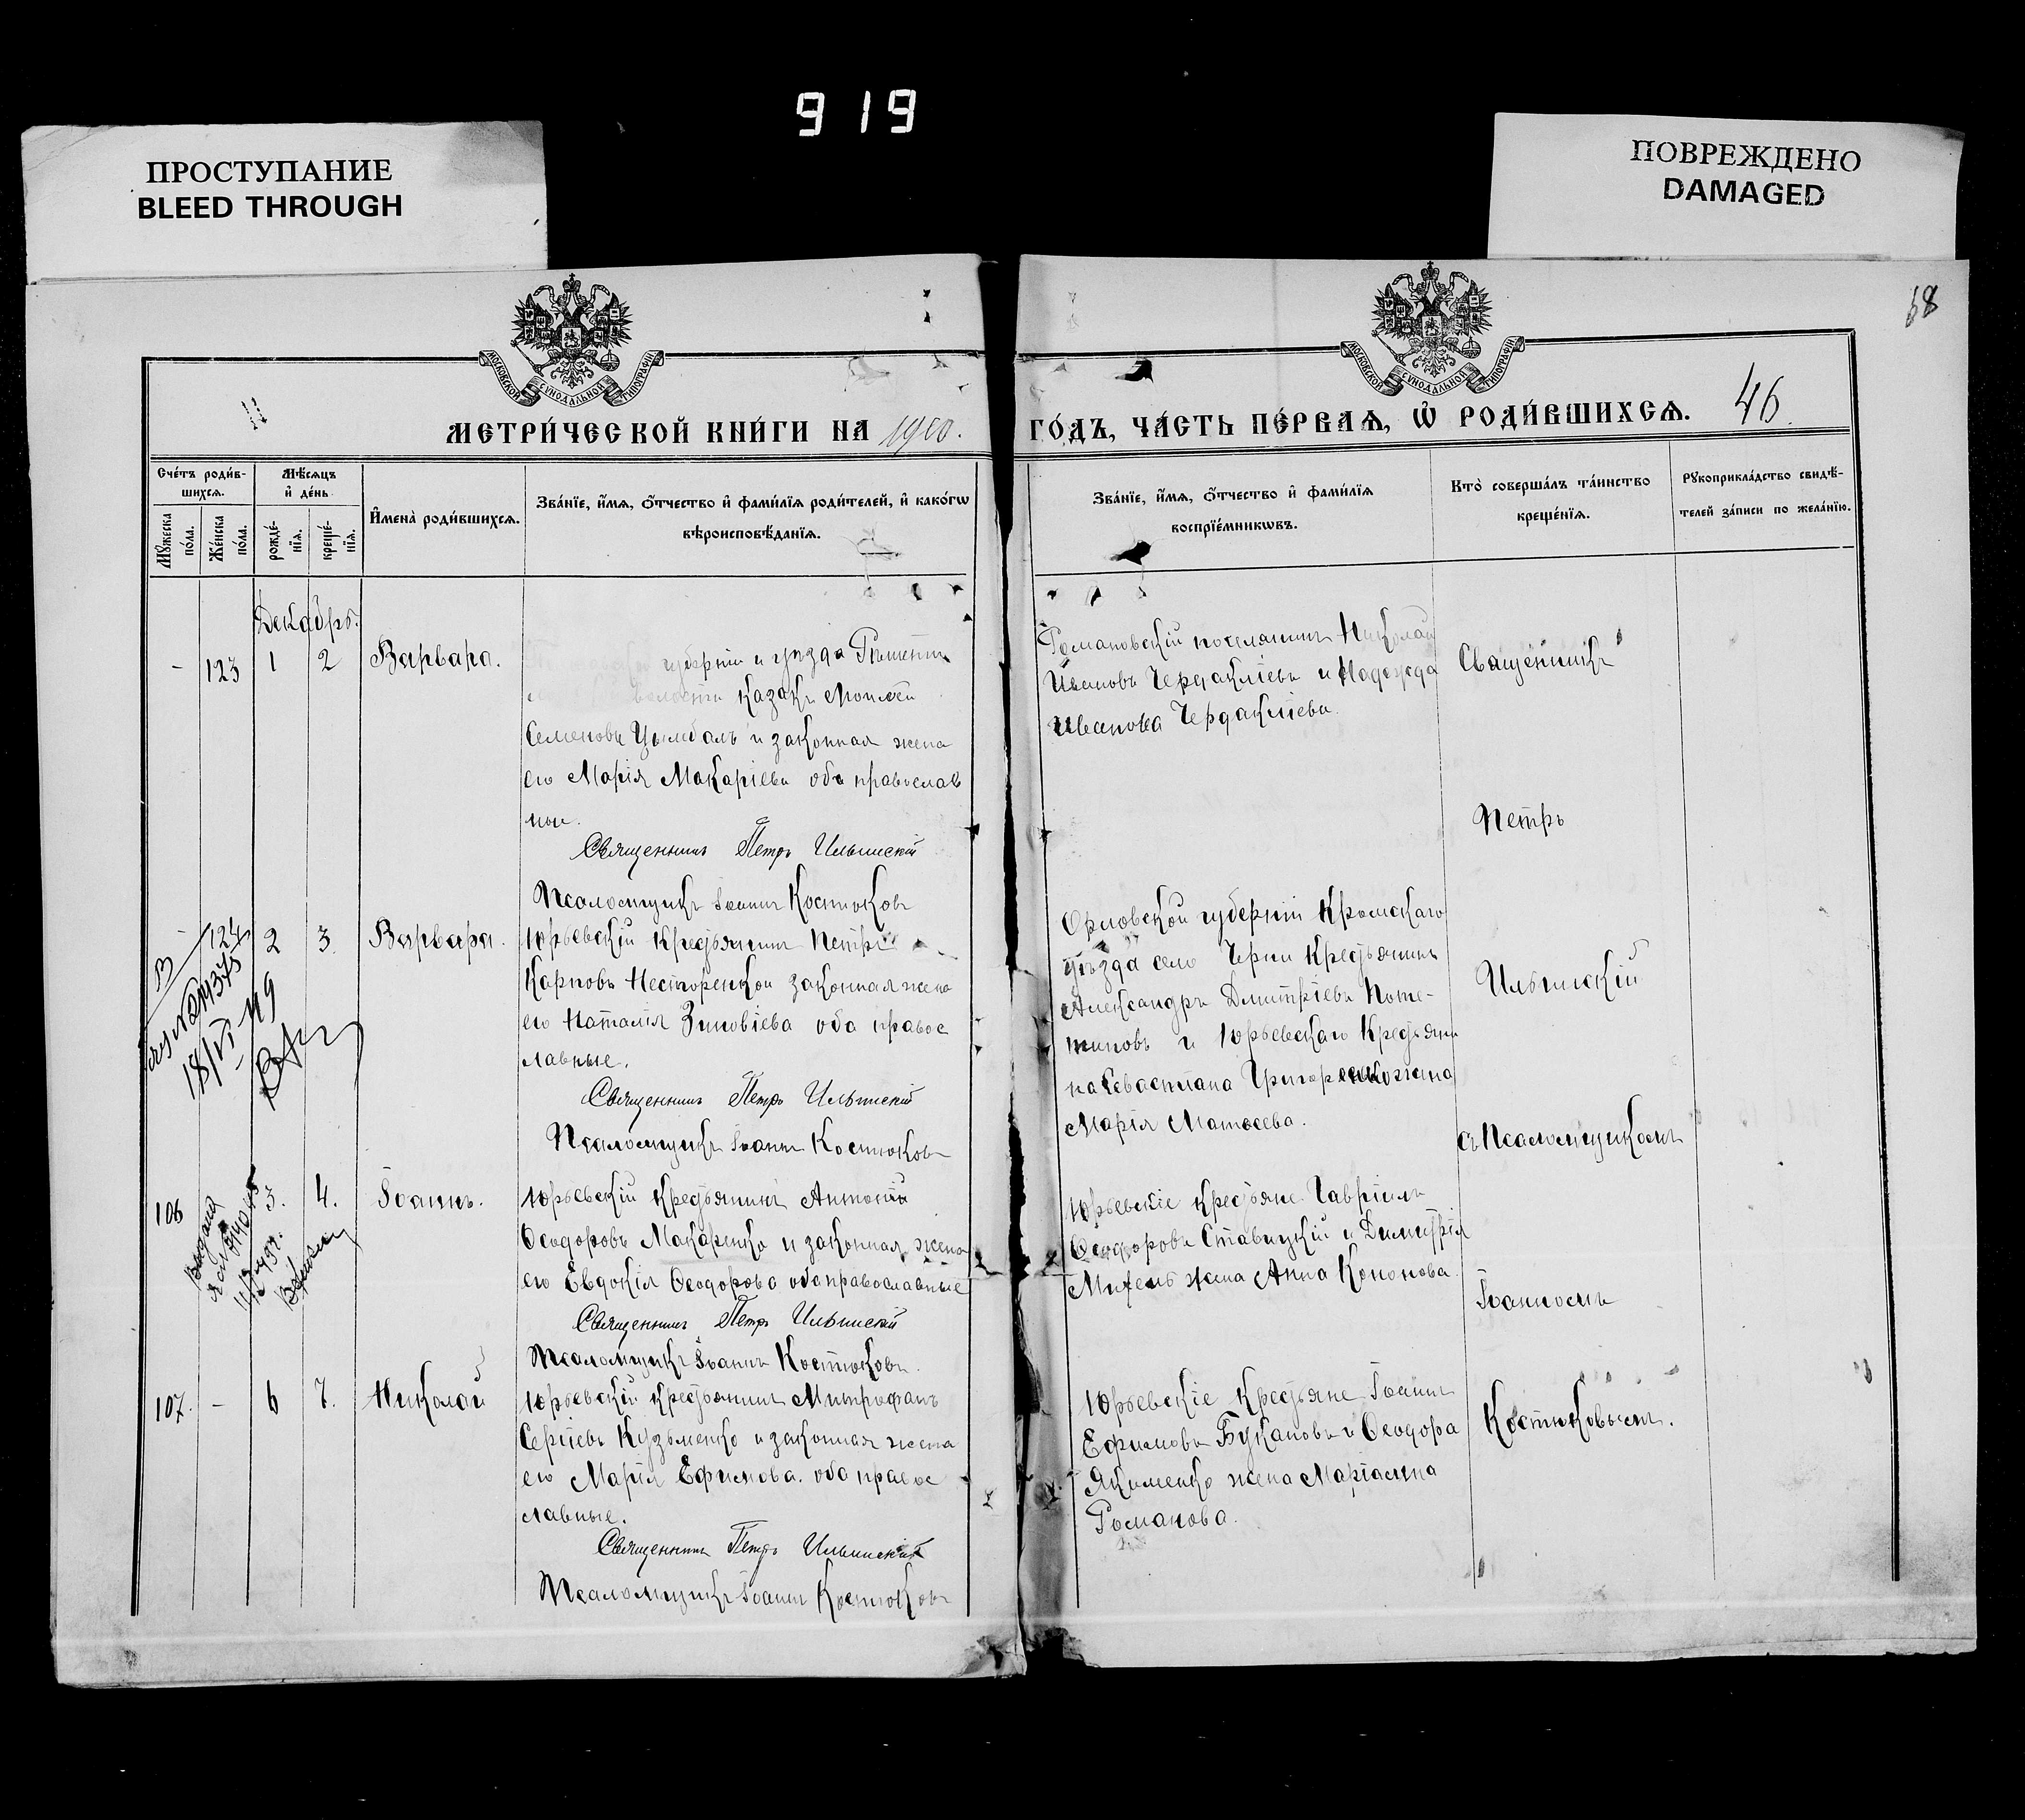 919
ПРОСТУПАНИЕ
BLEED THROUGH
ПОВРЕЖДЕНО
DAMAGED
68
МОСКОВСКОЙ СѴНОДАЛЬНОЙ ТИПОГРАФІИ
МОСКОВСКОЙ СѴНОДАЛЬНОЙ ТИПОГРАФІИ
МЕТРИ́ЧЕСКОЙ КНИ́ГИ НА 1900.
ГО́ДЪ, ЧА́СТЬ ПЕ́РВАѦ, Ѡ҆ РОДИ́ВШИХСѦ. 46.
Сче́тъ роди́в-
шихсѧ.
Мꙋ́жеска по́ла.
Же́нска по́ла.
Мѣ́сѧцъ
и҆ де́нь
рожде́-нїѧ.
креще́-нїѧ.
И҆мена̀ роди́вшихсѧ.
Зва́нїе, и҆́мѧ, ѻ҆́тчество и҆ фами́лїѧ роди́телей, и҆ како́гѡ
вѣроисповѣ́данїѧ.
Зва́нїе, и҆́мѧ, ѻ҆́тчество и҆ фами́лїѧ
воспрїе́мникѡвъ.
Кто̀ соверша́лъ та́инство
креще́нїѧ.
Рꙋкоприкла́дство свидѣ́-
телей за́писи по жела́нїю.
Декабрь.
- 123 1 2 Варвара.
губерніи и уѣзда
волости казакъ Моисей
Семеновъ Цымбалъ и законная жена
его Марія Макаріева оба православ
ные.
Священникъ Петръ Ильинскій
Псаломщикъ Іоаннъ Костюковъ
Романовскій поселянинъ Николай
Ивановъ Чердакліевъ и Надежда
Иванова Чердакліева.
- 124 2 3 Варвара.
18/VI
Юрьевскій крестьянинъ Петръ
Карповъ Несторенко и законная жена
его Наталія Зиновіева оба правос
лавные.
Священникъ Петръ Ильинскій
Псаломщикъ Іоаннъ Костюковъ
Орловской губерніи Кромскаго
уѣзда село Черни крестьянинъ
Александръ Димитріевъ
и Юрьевскаго крестьяни
на Севастіана Григоренко жена
Марія Матѳеева.
106 3. 4. Іоаннъ.
Выдана
Юрьевскій крестьянинъ Антоній
Ѳеодоровъ Макаренко и законная жена
его Евдокія Ѳеодорова оба православные
Священникъ Петръ Ильинскій
Псаломщикъ Іоаннъ Костюковъ.
Юрьевскіе крестьяне Гавріилъ
Ѳеодоровъ Ставицкій и Димитрія
жена Анна Кононова.
107. - 6 7. Николай
Юрьевскій крестьянинъ Митрофанъ
Сергіевъ Кузьменко и законная жена
его Марія Ефимова. оба правос
лавные.
Священникъ Петръ Ильинскій
Псаломщикъ Іоаннъ Костюковъ
Юрьевскіе крестьяне Іоаннъ
Ефимовъ Букановъ и Ѳеодора
Якименко жена Маріамна
Романова.
Священникъ
Петръ
Ильинскій
съ Псаломщикомъ
Іоанномъ
Костюковымъ.